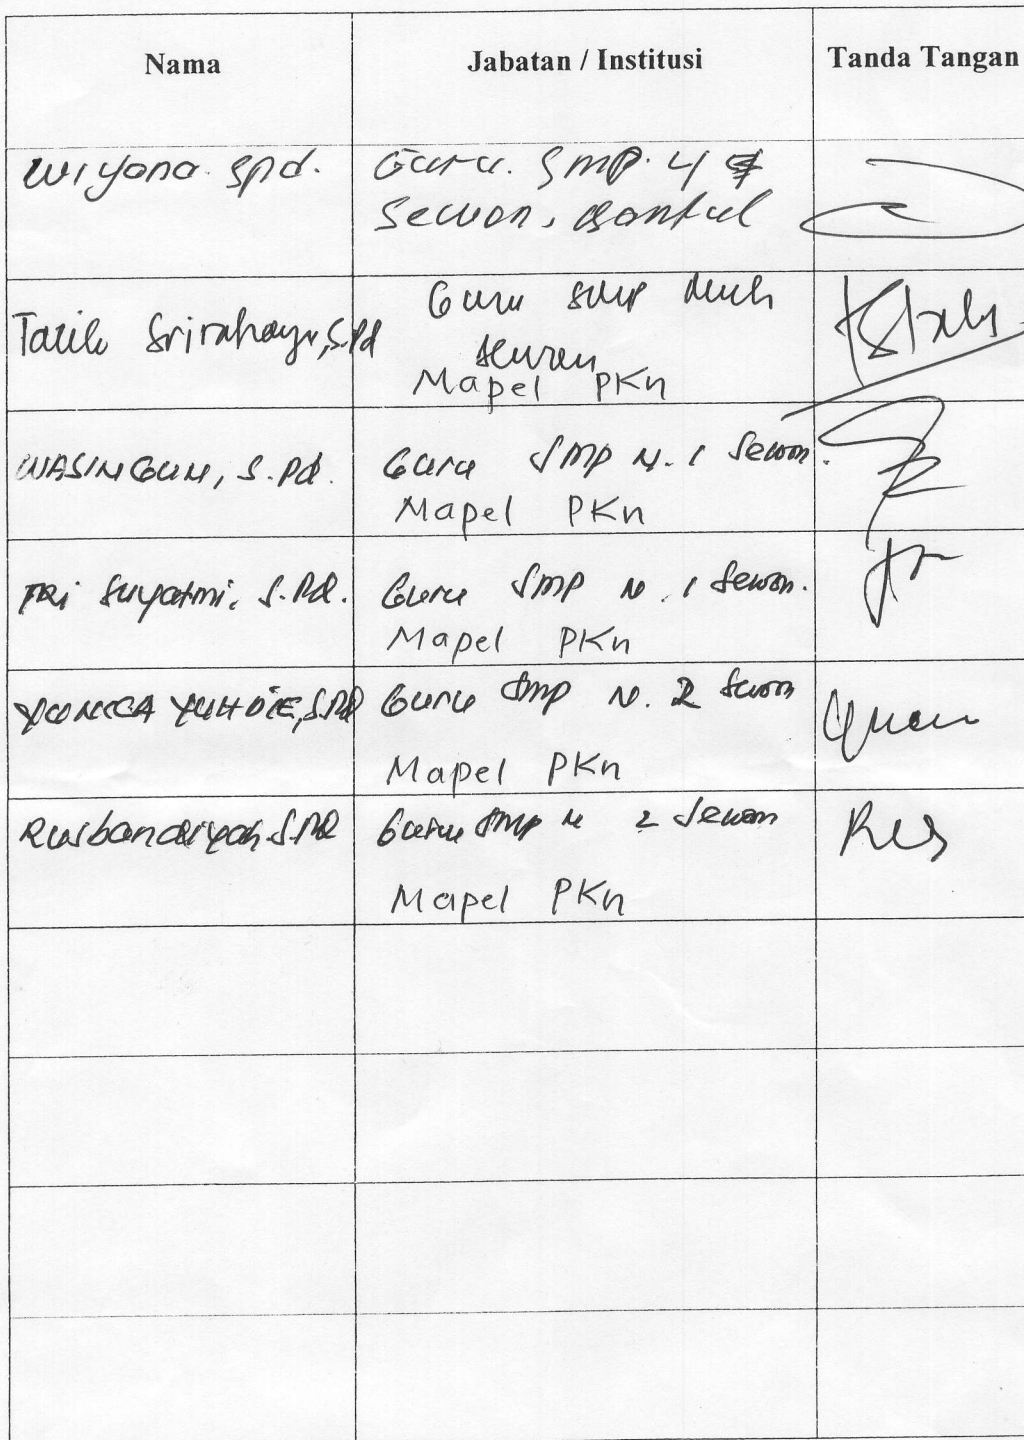 Nama Jabatan / Institusi Tanda Tangan
Wiyono Spd. Guru. SMP. 4
Sewon, Bantul
Tatik Srirahayu, S.Pd Guru SMP Muh
Mapel PKn
WASINGUN, S.Pd. Guru SMP N. 1 Sewon.
Mapel PKn
TRi Suyatmi, S.Pd. Guru SMP N. 1 Sewon.
Mapel PKn
S.Pd Guru SMP N. 2 Sewon
Mapel PKn
Rusbandiyah, S.Pd Guru SMP N 2 Sewon
Mapel PKn